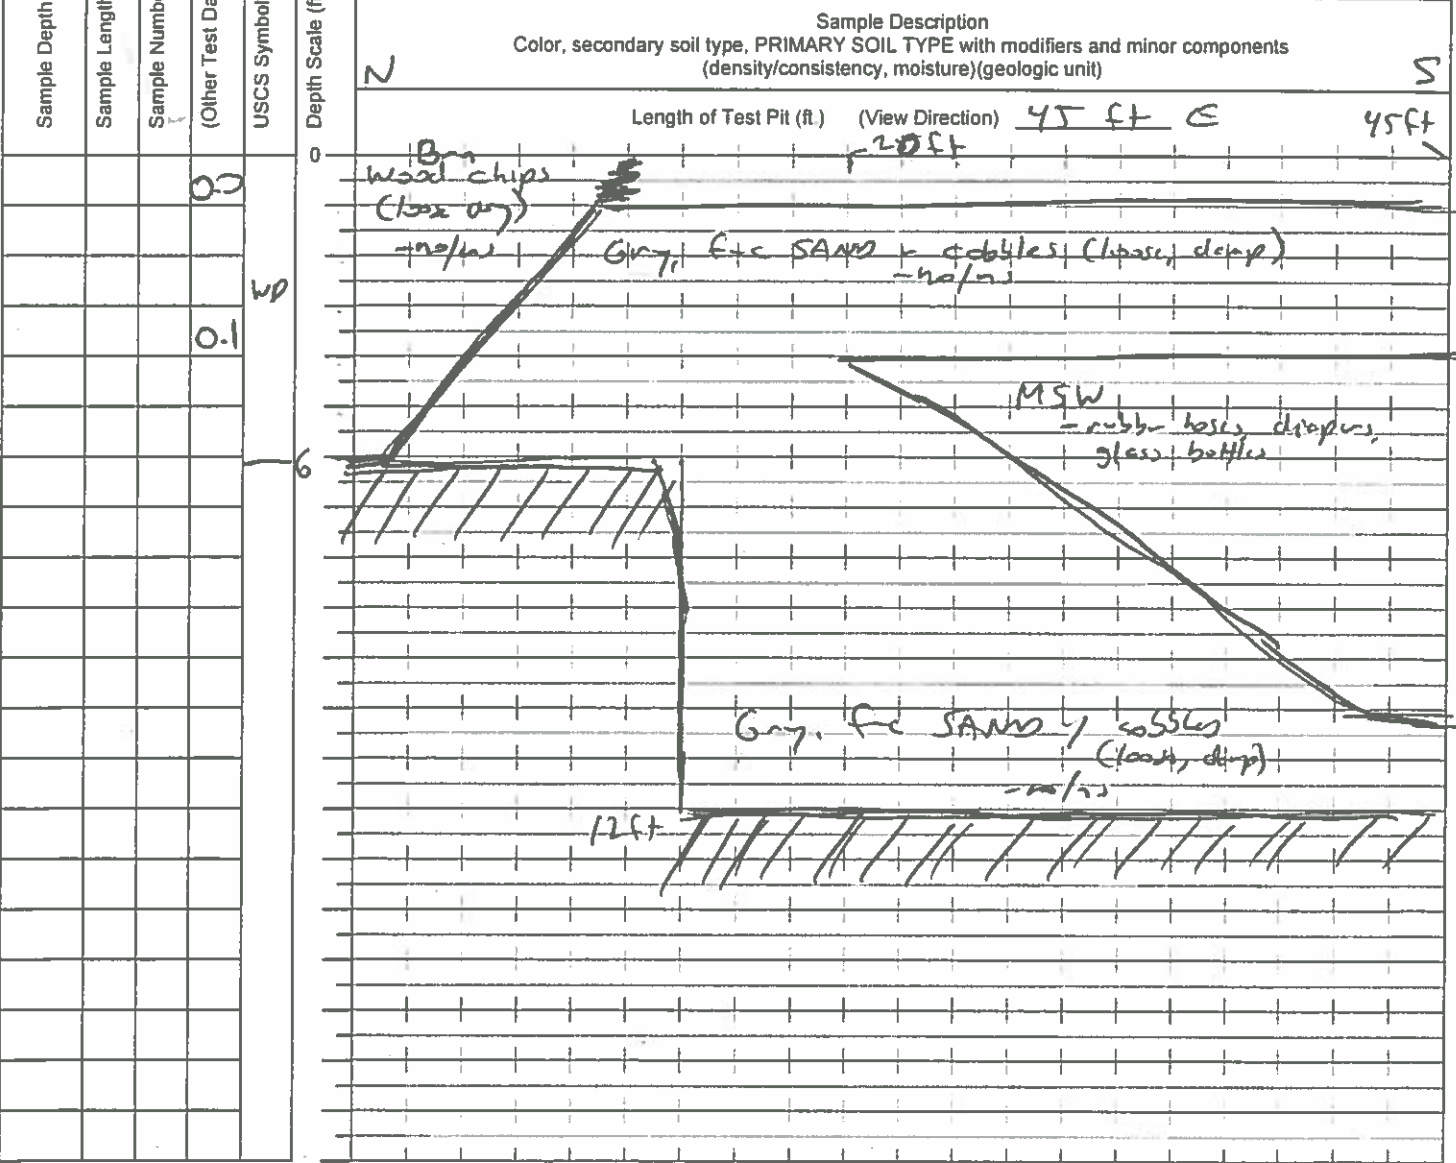 Sample Depth
Sample Length
Sample Numbe
(Other Test Da
USCS Symbol
Depth Scale (f
Sample Description
Color, secondary soil type, PRIMARY SOIL TYPE with modifiers and minor components
(density/consistency, moisture)(geologic unit)
N
S
Length of Test Pit (ft.) (View Direction) 45 ft E
45ft
20ft
0
Brn
wood chips
(loose dry)
-no/ns
0.0
Gry, f-c SAND cobbles (loose, damp)
-no/ns
WD
0.1
MSW
- rubber hoses, diapers,
glass bottles
6
Gry, f-c SAND w/ cobbles
(loose, damp)
-no/ns
12ft